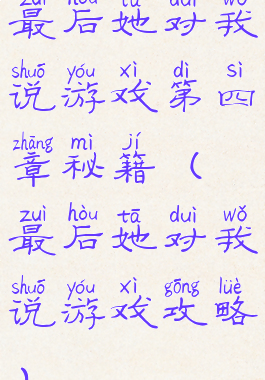 zuì hòu tā duì wǒ
最后她对我
shuō yóu xì dì sì
说游戏第四
zhāng mì jí
章秘籍（
zuì hòu tā duì wǒ
最后她对我
shuō yóu xì gōng lüè
说游戏攻略
）